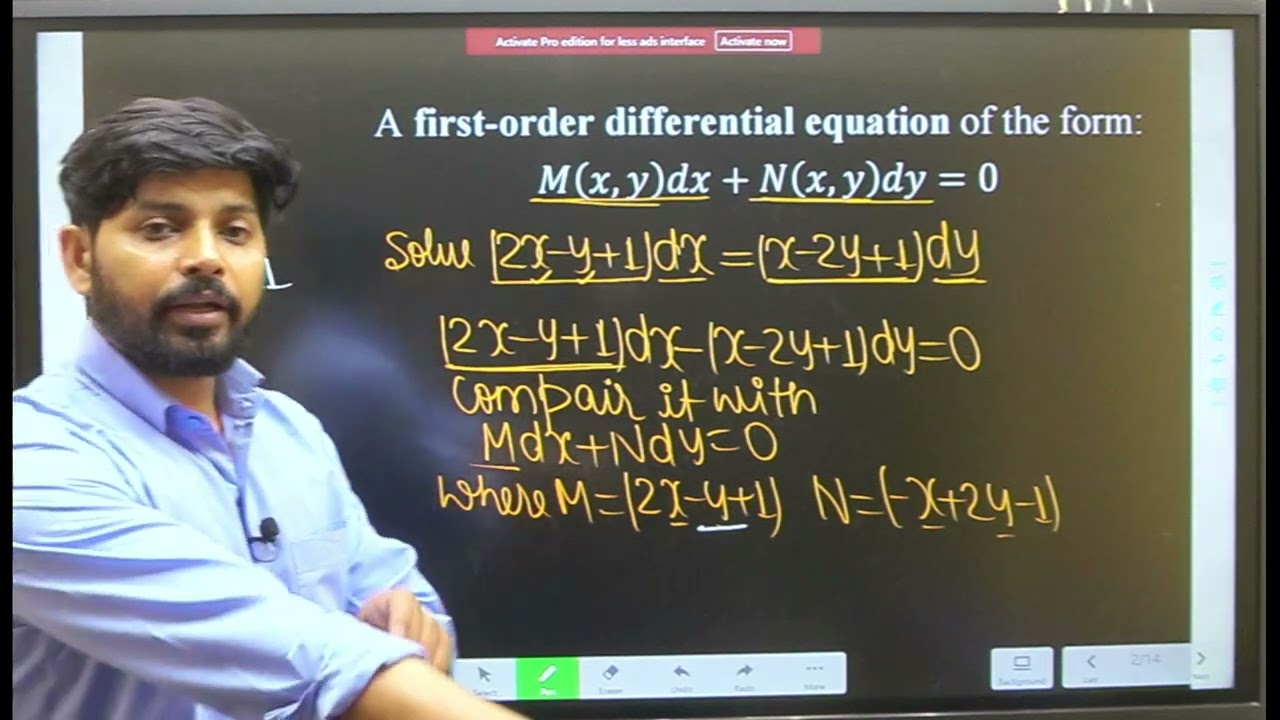 Activate Pro edition for less ads interface Activate now
A first-order differential equation of the form:
M(x, y)dx + N(x, y)dy = 0
Solve (2x-y+1)dx=(x-2y+1)dy
(2x-y+1)dx-(x-2y+1)dy=0
Compair it with
Mdx+Ndy=0
where M=(2x-y+1) N=(-x+2y-1)
Select Pen Eraser Undo Redo More Background Last 2/14 Next